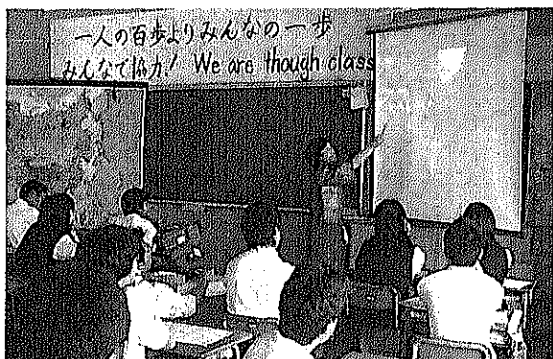 一人の百歩よりみんなの一歩
みんなで協力! We are though class